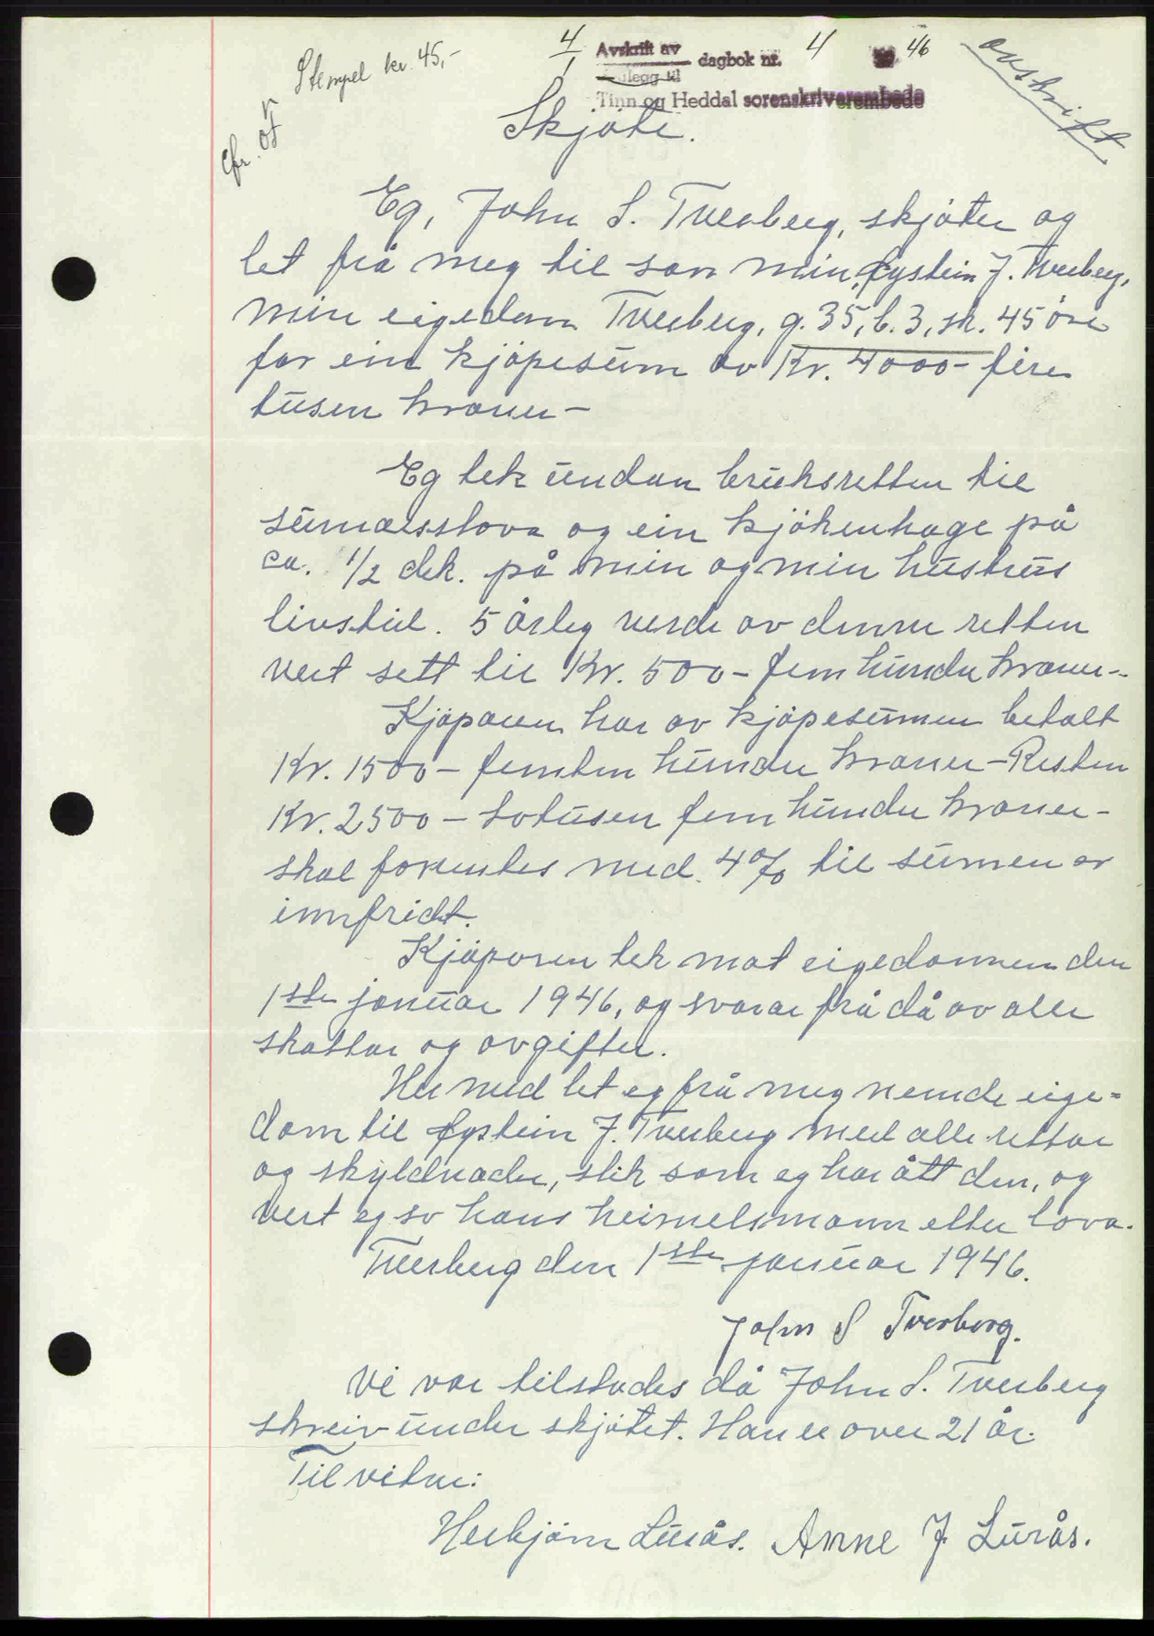 Stempel kr. 45,-
4/1 Avskrift av dagbok nr. 4 46
Tinn og Heddal sorenskriverembede
avskrift
Skjøte.
Eg, John S. Tverberg, skjøter og
let frå meg til son min, Øystein J. Tverberg,
min eigedom Tverberg, g. 35, b. 3, sk. 45 öre
for ein kjøpesum av Kr. 4000- fire
tusen kroner-
Eg tek undan bruksretten til
sumarsstova og ein kjøkenhage på
ca. 1/2 dek. på min og min hustrus
livstid. 5 årleg verde av denne retten
vert sett til Kr. 500- fem hundre kroner-
Kjøparen har av kjøpesumen betalt
Kr. 1500- femten hundre kroner- Resten
Kr. 2500- totusen fem hundre kroner-
skal forrentes med 4% til sumen er
innfridt.
Kjøparen tek mot eigedommen den
1ste januar 1946, og svarar frå då av alle
skattar og avgifter.
Her med let eg frå meg nemde eige=
dom til Øystein J. Tverberg med alle rettar
og skyldnader, slik som eg har ått den, og
vert eg so hans heimelsmann etter lova.
Tverberg den 1ste januar 1946.
John S Tverberg.
Vi var tilstades då John S. Tverberg
skreiv under skjøtet. Han er over 21 år.
Til vitne:
Herbjørn Lurås. Anne J. Lurås.